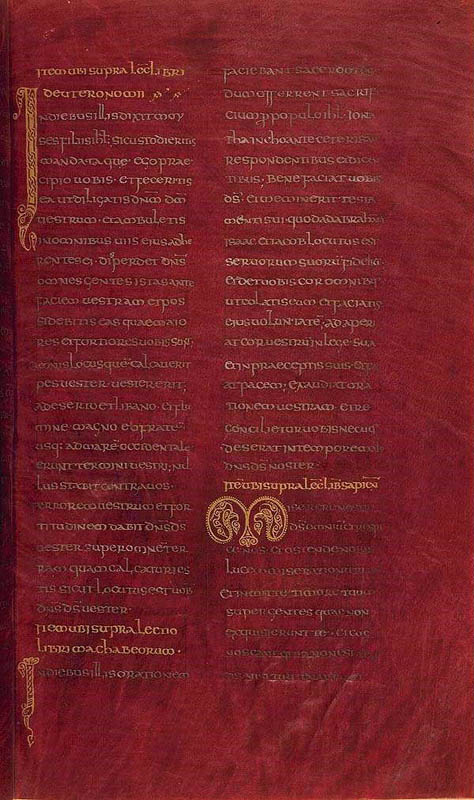 ITEM UBI SUPRA LEC̄ LIBRI
DEUTERONOMII
IN DIEBUS ILLIS DIXIT MOY
SES FILIIS ISR̄L SI CUSTODIERITIS
MANDATA QUE EGO PRAE
CIPIO UOBIS ET FECERITIS
EA UT DILIGATIS DN̄M DM̄
UESTRUM ET AMBULETIS
IN OMNIBUS UIIS EIUS ADHE
RENTES EI DISPERDET DN̄S
OMNES GENTES ISTAS ANTE
FACIEM UESTRAM ET POS
SIDEBITIS EAS QUAE MAIO
RES ET FORTIORES UOBIS SUNT
OMNIS LOCUS QUE CALCAUERIT
PES UESTER UESTER ERIT
A DESERTO ET LIBANO
MINE MAGNO EUFRATE
USQ AD MARE OCCIDENTALE
ERUNT TERMINI UESTRI NUL
LUS STABIT CONTRA UOS
TERROREM UESTRUM ET FOR
MITUDINEM DABIT DN̄S DS̄
UESTER SUPER OMNEM TER
RAM QUAM CALCATURI ES
TIS SICUT LOCUTUS EST UOB
DN̄S DS̄ UESTER
ITEM UBI SUPRA LECTIO
LIBRI MACHABEORUM
IN DIEBUS ILLIS ORATIONEM
FACIEBANT SACERDOTES
DUM OFFERRENT SACRIF
CIUM P POPULO ISR̄L IONA
THA INCHOANTE CETERIS AU
RESPONDENTIBUS ET DICEN
TIBUS BENEFACIAT UOBIS
DS̄ ET MEMINERIT TESTA
MENTI SUI QUOD AD ABRAHA
ISAAC ET IACOB LOCUTUS EST
SERUORUM SUORU FIDELIU
ET DET UOBIS COR OMNIBUS
UT COLATIS EUM ET FACIATIS
EIUS UOLUNTATE ADAPERI
AT COR UESTRU IN LEGE SUA
ET IN PRAECEPTIS SUIS ET FACI
AT PACEM EXAUDIAT ORA
TIONEM UESTRAM ET RE
CONCILIETUR UOBIS NEC UOS
DESERAT IN TEMPORE MALO
DN̄S DS̄ NOSTER
ITE UBI SUPRA LEC̄ LIB SAPIEN
MISERERE NOSTRI
DS̄ OMNIU ET RESPI
CE NOS ET OSTENDE NOBIS
LUCE MISERATIONU TUARU
ET INMITTE TIMORE TUUM
SUPER GENTES QUAE NON
EXQUISIERUNT TE ET COG
NOSCANT QUIA NON EST ALIUS
DS̄ NISI TU